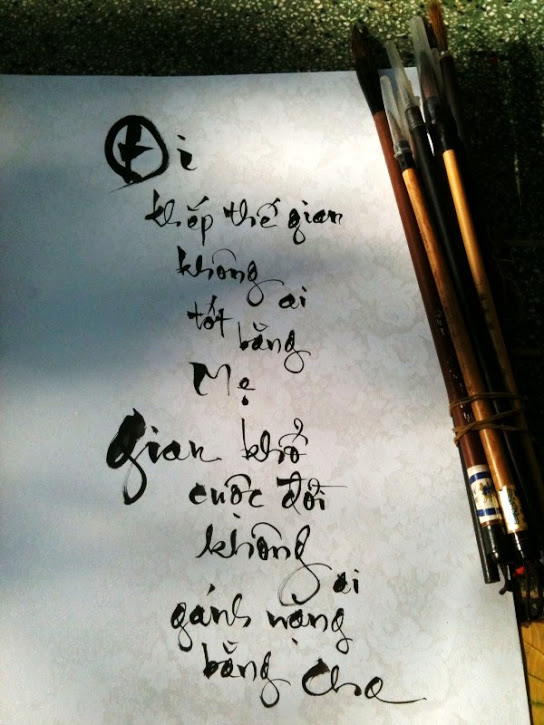 Đi
khắp thế gian
không ai
tốt bằng
Mẹ
gian khổ
cuộc đời
không ai
gánh nặng
bằng Cha